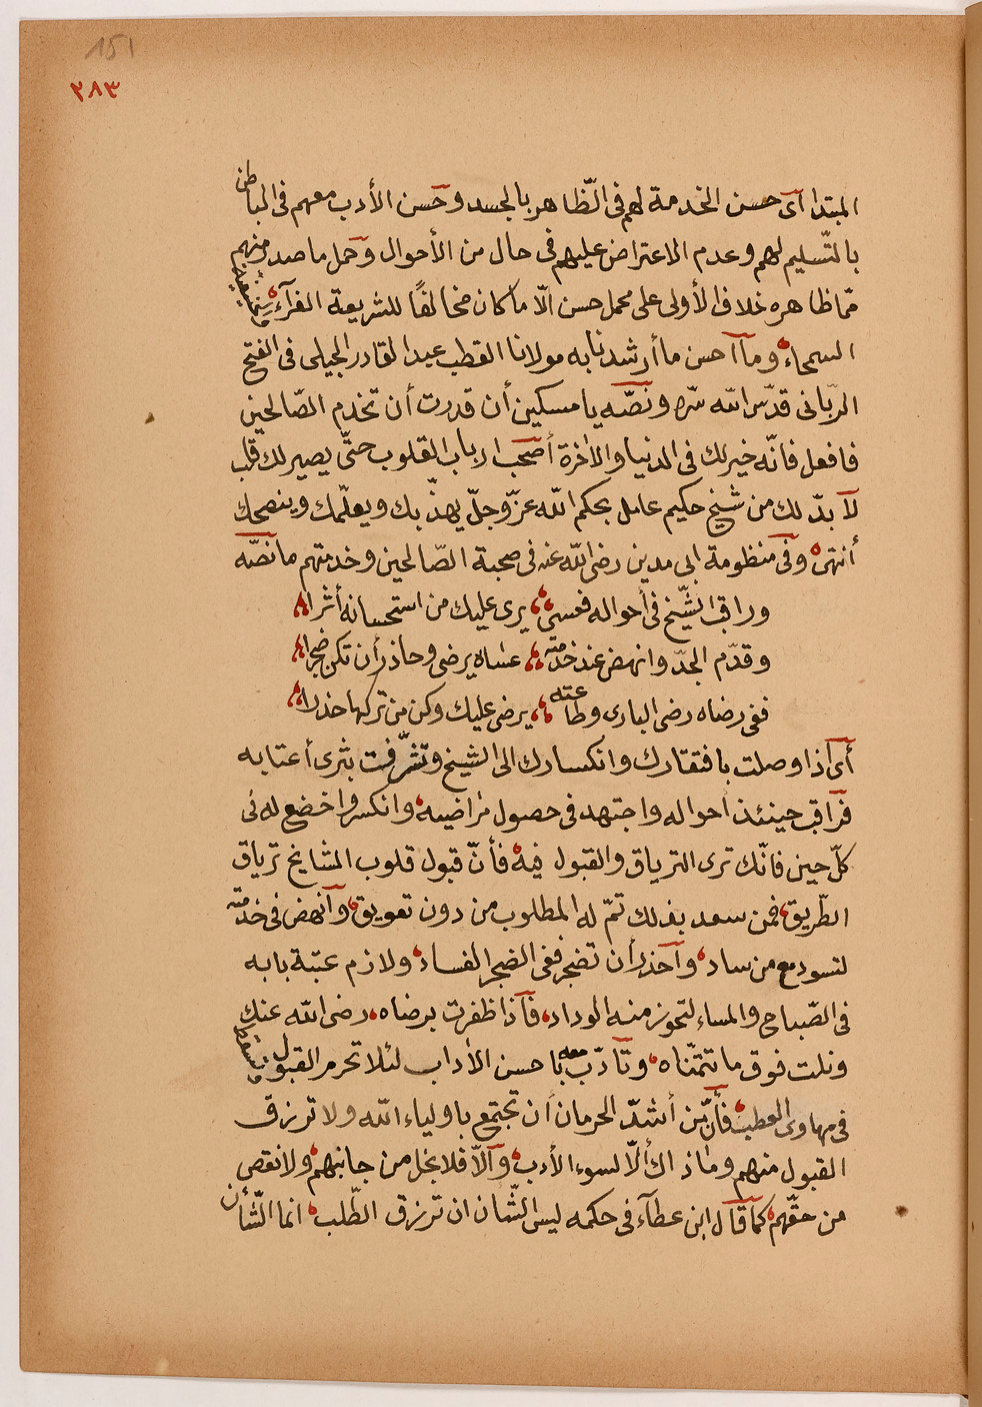 151
٢٨٣
المبتدا أى حسن الخدمة لهم فى الظّاهر بالجسد وحسن الأدب معهم فى الباطن
بالتّسليم لهم وعدم الاعتراض عليهم فى حال من الأحوال وحمل ما صدر منهم
ممّا ظاهره خلاف الأولى على محمل حسن الّا ما كان مخالفًا للشريعة الغرآء
السمحاء وما احسن ما أرشدنا به مولانا القطب عبد القادر الجيلى فى الفتح
الربّانى قدّس الله سرّه ونصّه يا مسكين أن قدرت أن تخدم الصّالحين
فافعل فانّه خير لك فى الدنيا والاٰخرة أصحب ارباب القلوب حتّى يصير لك قلب
لا بدّ لك من شيخ حكيم عامل بحكم الله عزّ وجلّ يهذّبك ويعلّمك وينصحك
أنتهى وفى منظومة ابى مدين رضى الله عنه فى صحبة الصّالحين وخدمتهم ما نصّه
وراقب الشّيخ فى أحواله فعسى يرى عليك من استحسانه أثرا
وقدّم الجدّ وانهض عند خدمته عساه يرضى وحاذر أن تكن ضجرا
ففى رضاه رضى البارى وطاعته يرضى عليك وكن من تركها حذرا
أى أذا وصلت بافتقارك وانكسارك الى الشيخ وتشرّفت بثرى أعتابه
فراقب حينئذ احواله واجتهد فى حصول مراضيه وانكسر واخضع له فى
كلّ حين فانّك ترى الترياق والقبول فيه فأنّ قبول قلوب المشايخ ترياق
الطّريق فمن سعد بذلك تمّ له المطلوب من دون تعويق وأنهض فى خدمته
لتسود مع من ساد وأحذر أن تضجر ففى الضجر الفساد ولازم عتبة بابه
فى الصّباح والمساء لتحوز منه الوداد فأذا ظفرت برضاه رضى الله عنك
ونلت فوق ما تتمنّاه وتأدّب معه باحسن الاٰداب لئلا تحرم القبول وتسقط
فى مهاوى العطب فأنّ من أشدّ الحرمان أن تجتمع باولياء الله ولا ترزق
القبول منهم وما ذاك ألّا لسوء الأدب وألّا فلا بخل من جانبهم ولا نقص
من حقّهم كما قال ابن عطآء فى حكمه ليس الشّان ان ترزق الطّلب انما الشّأن